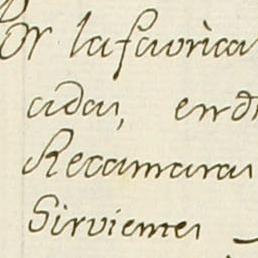 Or la favrica
cadas, en d
Recamaras
Sirvientes